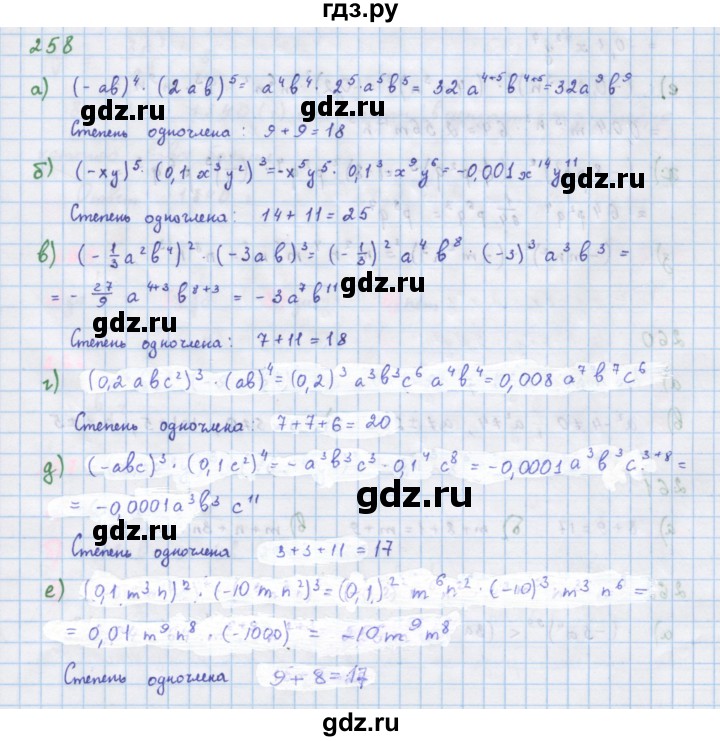 гдз.ру
258
а) (-ab)⁴ · (2ab)⁵ = a⁴b⁴ · 2⁵ · a⁵b⁵ = 32 a⁴⁺⁵b⁴⁺⁵ = 32a⁹b⁹
gdz.ru gdz.ru
Степень одночлена : 9 + 9 = 18
б) (-xy)⁵ · (0,1 x³y²)³ = -x⁵y⁵ · 0,1³ · x⁹y⁶ = -0,001x¹⁴y¹¹
gdz.ru
Степень одночлена: 14 + 11 = 25
gdz.ru
в) (-1/3 a²b⁴)² · (-3ab)³ = (-1/3)² a⁴ b⁸ · (-3)³ a³ b³ =
= - 27/9 a⁴⁺³ b⁸⁺³ = - 3a⁷b¹¹
gdz.ru gdz.ru
Степень одночлена: 7 + 11 = 18
г) (0,2 abc²)³ · (ab)⁴ = (0,2)³ a³b³c⁶ a⁴b⁴ = 0,008 a⁷b⁷c⁶
gdz.ru
Степень одночлена : 7 + 7 + 6 = 20
gdz.ru
д) (-abc)³ · (0,1c²)⁴ = - a³b³c³ · 0,1⁴ c⁸ = -0,0001a³b³c³⁺⁸ =
gdz.ru
= -0,0001a³b³ c¹¹
gdz.ru
Степень одночлена 3 + 3 + 11 = 17
е) (0,1 m³n)² · (-10 mn²)³ = (0,1)² m⁶n² · (-10)³ m³ n⁶ =
gdz.ru
= 0,01 m⁹n⁸ · (-1000) = -10m⁹m⁸
gdz.ru
Степень одночлена 9 + 8 = 17
gdz.ru gdz.ru